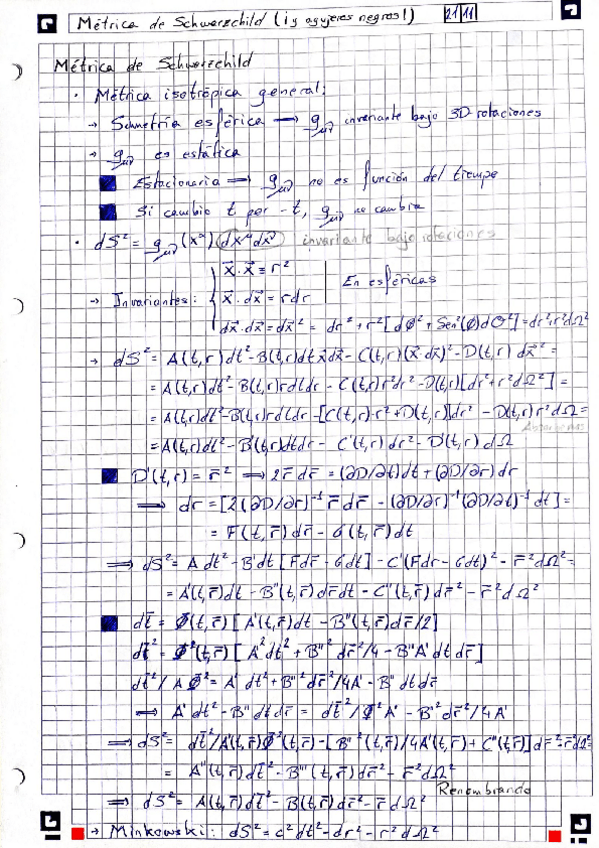 Métrica de Schwarzschild (¡y agujeros negros!) 21/11
Métrica de Schwarzschild
· Métrica isotrópica general:
→ Simetría esférica ⟶ g_μν invariante bajo 3D rotaciones
→ g_μν es estática
Estacionaria ⟹ g_μν no es función del tiempo
Si cambio t por -t, g_μν no cambia
· dS² = g_μν(x^α) dx^μ dx^ν invariante bajo rotaciones
x⃗·x⃗ = r²
→ Invariantes: x⃗·dx⃗ = rdr En esféricas
dx⃗·dx⃗ = dx⃗² = dr² + r²[dΦ² + Sen²(Φ)dΘ²] = dr²+r²dΩ²
→ dS² = A(t,r)dt² - B(t,r)dt x⃗dx⃗ - C(t,r)(x⃗·dx⃗)² - D(t,r) dx⃗² =
= A(t,r)dt² - B(t,r)rdtdr - C(t,r)r²dr² - D(t,r)[dr²+r²dΩ²] =
= A(t,r)dt² - B(t,r)rdtdr - [C(t,r)·r²+D(t,r)]dr² - D(t,r)r²dΩ =
= A(t,r)dt² - B'(t,r)dtdr - C'(t,r)dr² - D'(t,r)dΩ
D'(t,r) = r̄² ⟶ 2r̄ dr̄ = (∂D/∂t)dt + (∂D/∂r)dr
⟹ dr = [2(∂D/∂r)⁻¹ r̄ dr̄ - (∂D/∂r)⁻¹(∂D/∂t)⁻¹dt] =
= F(t,r̄)dr̄ - G(t,r̄)dt
⟹ dS² = A dt² - B'dt[Fdr̄ - Gdt] - C'(Fdr - Gdt)² - r̄²dΩ² =
= A'(t,r̄)dt - B''(t,r̄)dr̄dt - C''(t,r̄)dr̄² - r̄²dΩ²
dt̄ = Φ(t,r̄)[A'(t,r̄)dt - B''(t,r̄)dr̄/2]
dt̄² = Φ²(t,r̄)[A'²dt² + B''²dr̄²/4 - B''A'dtdr̄]
dt̄²/AΦ² = A'dt² + B''²dr̄²/4A' - B''dtdr̄
⟹ A'dt² - B''dtdr̄ = dt̄²/Φ²A' - B''²dr̄²/4A'
⟹ dS² = dt̄²/A'(t,r̄)Φ²(t,r̄) - [B''²(t,r̄)/4A'(t,r̄) + C''(t,r̄)]dr̄² - r̄²dΩ² =
= A''(t,r̄)dt̄² - B'''(t,r̄)dr̄² - r̄²dΩ²
Renombrando
⟹ dS² = A(t,r̄)dt̄² - B(t,r̄)dr̄² - r̄dΩ²
→ Minkowski: dS² = c²dt² - dr² - r²dΩ²